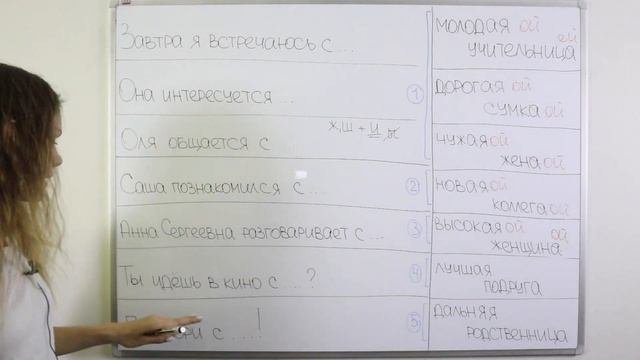 Завтра я встречаюсь с ...
Она интересуется ...
Ж, Ш + И, Ы
Оля общается с
Саша познакомился с ...
Анна Сергеевна разговаривает с ...
Ты идёшь в кино с ....?
с ....!
1
2
3
4
5
молодая ой
учительница ей
дорогая ой
сумка ой
чужая ой
жена ой
новая ой
коллега ой
высокая ой
женщина ой
лучшая
подруга
дальняя
родственница